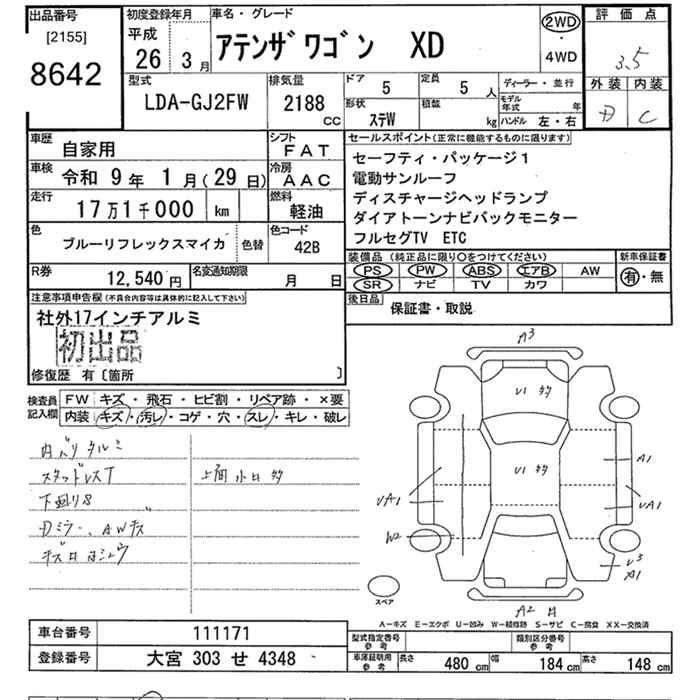 出品番号
[2155]
8642
初度登録年月
平成
26 3月
車名・グレード
アテンザワゴン XD
2WD
・
4WD
評価点
3.5
外装 内装
D C
型式
LDA-GJ2FW
排気量
2188
CC
ドア
5
定員
5人
形状
ステW
積載
kg
ディーラー・並行
モデル年式 年
ハンドル 左・右
車歴
自家用
シフト
FAT
車検
令和 9年 1月(29日)
冷房
AAC
走行
17万1千000 km
燃料
軽油
色
ブルーリフレックスマイカ
色替
色コード
42B
R券
12,540円
名変通知期限
月 日
セールスポイント(正常に機能するものに限ります)
セーフティ・パッケージ1
電動サンルーフ
ディスチャージヘッドランプ
ダイアトーンナビバックモニター
フルセグTV ETC
装備品 (純正品に限り〇をつけてください)
PS PW ABS エアB AW
SR ナビ TV カワ
新車保証書
有・無
後日品
保証書・取説
注意事項申告欄(不具合内容等は具体的に記入して下さい)
社外17インチアルミ
初出品
修復歴 有〔箇所 〕
検査員記入欄
FW キズ・飛石・ヒビ割・リペア跡・×要
内装 キズ・汚レ・コゲ・穴・スレ・キレ・破レ
内バリタルミ
スタッドレスT
下廻りS
上面小凹多
A3
U1 多
U1 多
A1
UA1
UA1
W2
U3
A1
A2
スペア
A-キズ E-エクボ U-凹み W-補修跡 S-サビ C-腐食 XX-交換済
車台番号
111171
登録番号
大宮 303 せ 4348
型式指定番号
参考
類別区分番号
参考
車庫証明用
参考
長さ 480cm 幅 184cm 高さ 148cm